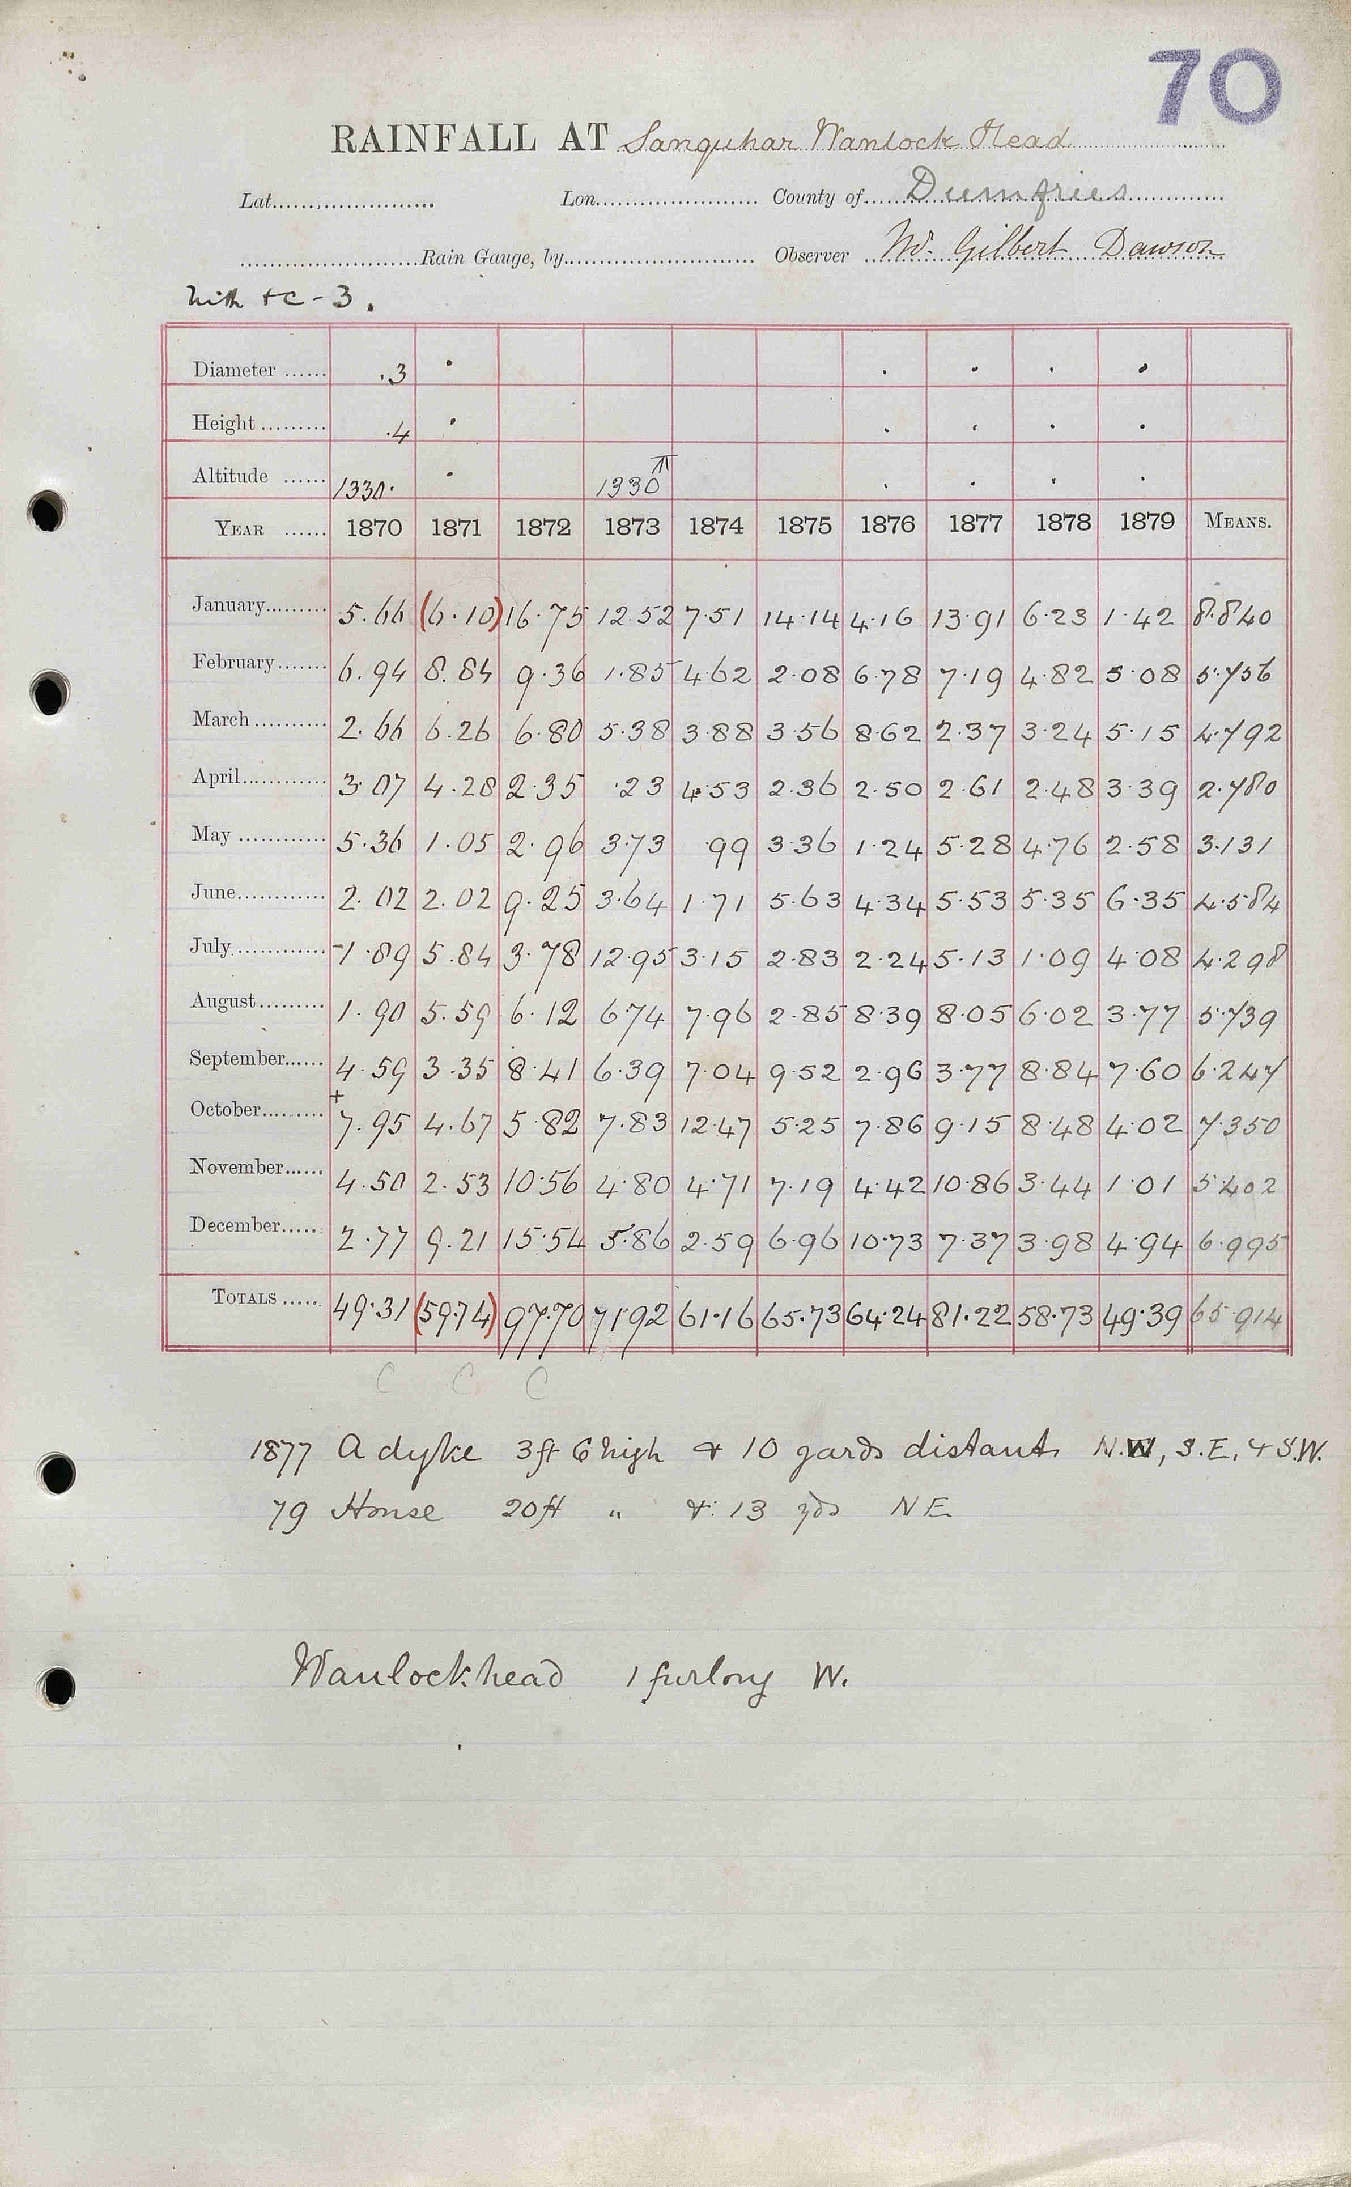 70
RAINFALL AT Sanquhar Wanlock Head
Lat. Lon. County of Dumfries
Rain Gauge, by Observer Mr. Gilbert Dawson
Diameter .3
Height .4
Altitude 1330. 1330
YEAR 1870 1871 1872 1873 1874 1875 1876 1877 1878 1879 MEANS.
January 5.66 (6.10) 16.75 12.52 7.51 14.14 4.16 13.91 6.23 1.42 8.840
February 6.94 8.84 9.36 1.85 4.62 2.08 6.78 7.19 4.82 5.08 5.756
March 2.66 6.26 6.80 5.38 3.88 3.56 8.62 2.37 3.24 5.15 4.792
April 3.07 4.28 2.35 .23 4.53 2.36 2.50 2.61 2.48 3.39 2.780
May 5.36 1.05 2.96 3.73 .99 3.36 1.24 5.28 4.76 2.58 3.131
June 2.02 2.02 9.25 3.64 1.71 5.63 4.34 5.53 5.35 6.35 4.584
July 1.89 5.84 3.78 12.95 3.15 2.83 2.24 5.13 1.09 4.08 4.298
August 1.90 5.59 6.12 6.74 7.96 2.85 8.39 8.05 6.02 3.77 5.739
September 4.59 3.35 8.41 6.39 7.04 9.52 2.96 3.77 8.84 7.60 6.247
October 7.95 4.67 5.82 7.83 12.47 5.25 7.86 9.15 8.48 4.02 7.350
November 4.50 2.53 10.56 4.80 4.71 7.19 4.42 10.86 3.44 1.01 5.402
December 2.77 9.21 15.54 5.86 2.59 6.96 10.73 7.37 3.98 4.94 6.995
TOTALS 49.31 (59.74) 97.70 71.92 61.16 65.73 64.24 81.22 58.73 49.39 65.914
C C C
1877 A dyke 3ft 6 high & 10 yards distant N.W, S.E, & S.W.
79 House 20ft " & 13 yds NE
Wanlockhead 1 furlong W.